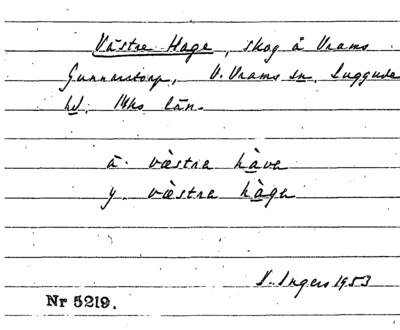 Västra Hage, skog å Vrams
Gunnarstorp, V. Vrams sn. Luggude
hd. Mhs län.
ä. væstra hàve
y. væstra hàge
I. Ingers 1953
Nr 5219.